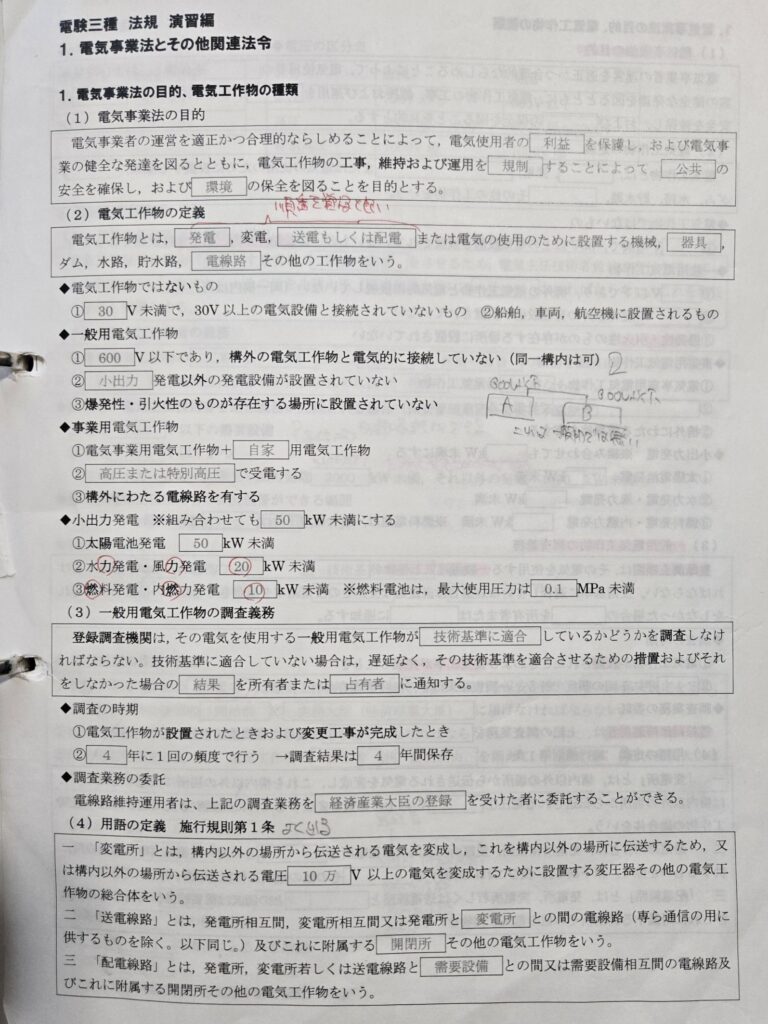 電験三種 法規 演習編
1. 電気事業法とその他関連法令
1. 電気事業法の目的、電気工作物の種類
（1）電気事業法の目的
電気事業者の運営を適正かつ合理的ならしめることによって，電気使用者の 利益 を保護し，および電気事
業の健全な発達を図るとともに，電気工作物の工事，維持および運用を 規制 することによって 公共 の
安全を確保し，および 環境 の保全を図ることを目的とする。
（2）電気工作物の定義
電気工作物とは，発電，変電，送電もしくは配電 または電気の使用のために設置する機械，器具，
ダム，水路，貯水路，電線路 その他の工作物をいう。
◆電気工作物ではないもの
①30 V 未満で，30V 以上の電気設備と接続されていないもの ②船舶，車両，航空機に設置されるもの
◆一般用電気工作物
①600 V 以下であり，構外の電気工作物と電気的に接続していない（同一構内は可）
②小出力 発電以外の発電設備が設置されていない
③爆発性・引火性のものが存在する場所に設置されていない
A
B
◆事業用電気工作物
①電気事業用電気工作物＋ 自家 用電気工作物
②高圧または特別高圧 で受電する
③構外にわたる電線路を有する
◆小出力発電 ※組み合わせても 50 kW 未満にする
①太陽電池発電 50 kW 未満
②水力発電・風力発電 20 kW 未満
③燃料発電・内燃力発電 10 kW 未満 ※燃料電池は，最大使用圧力は 0.1 MPa 未満
（3）一般用電気工作物の調査義務
登録調査機関は，その電気を使用する一般用電気工作物が 技術基準に適合 しているかどうかを調査しなけ
ればならない。技術基準に適合していない場合は，遅延なく，その技術基準を適合させるための措置およびそれ
をしなかった場合の 結果 を所有者または 占有者 に通知する。
◆調査の時期
①電気工作物が設置されたときおよび変更工事が完成したとき
②4 年に1回の頻度で行う →調査結果は 4 年間保存
◆調査業務の委託
電線路維持運用者は，上記の調査業務を 経済産業大臣の登録 を受けた者に委託することができる。
（4）用語の定義 施行規則第1条 よく出る
一 「変電所」とは，構内以外の場所から伝送される電気を変成し，これを構内以外の場所に伝送するため，又
は構内以外の場所から伝送される電圧 10 万 V 以上の電気を変成するために設置する変圧器その他の電気工
作物の総合体をいう。
二 「送電線路」とは，発電所相互間，変電所相互間又は発電所と 変電所 との間の電線路（専ら通信の用に
供するものを除く。以下同じ。）及びこれに附属する 開閉所 その他の電気工作物をいう。
三 「配電線路」とは，発電所，変電所若しくは送電線路と 需要設備 との間又は需要設備相互間の電線路及
びこれに附属する開閉所その他の電気工作物をいう。